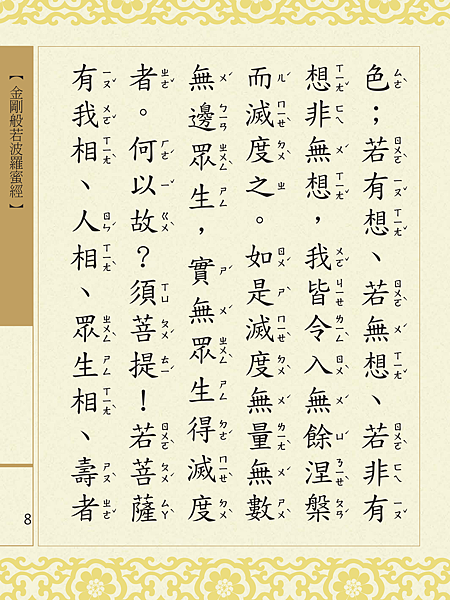 色；若有想、若無想、若非有
想非無想，我皆令入無餘涅槃
而滅度之。如是滅度無量無數
無邊眾生，實無眾生得滅度
者。何以故？須菩提！若菩薩
有我相、人相、眾生相、壽者
【金剛般若波羅蜜經】
8